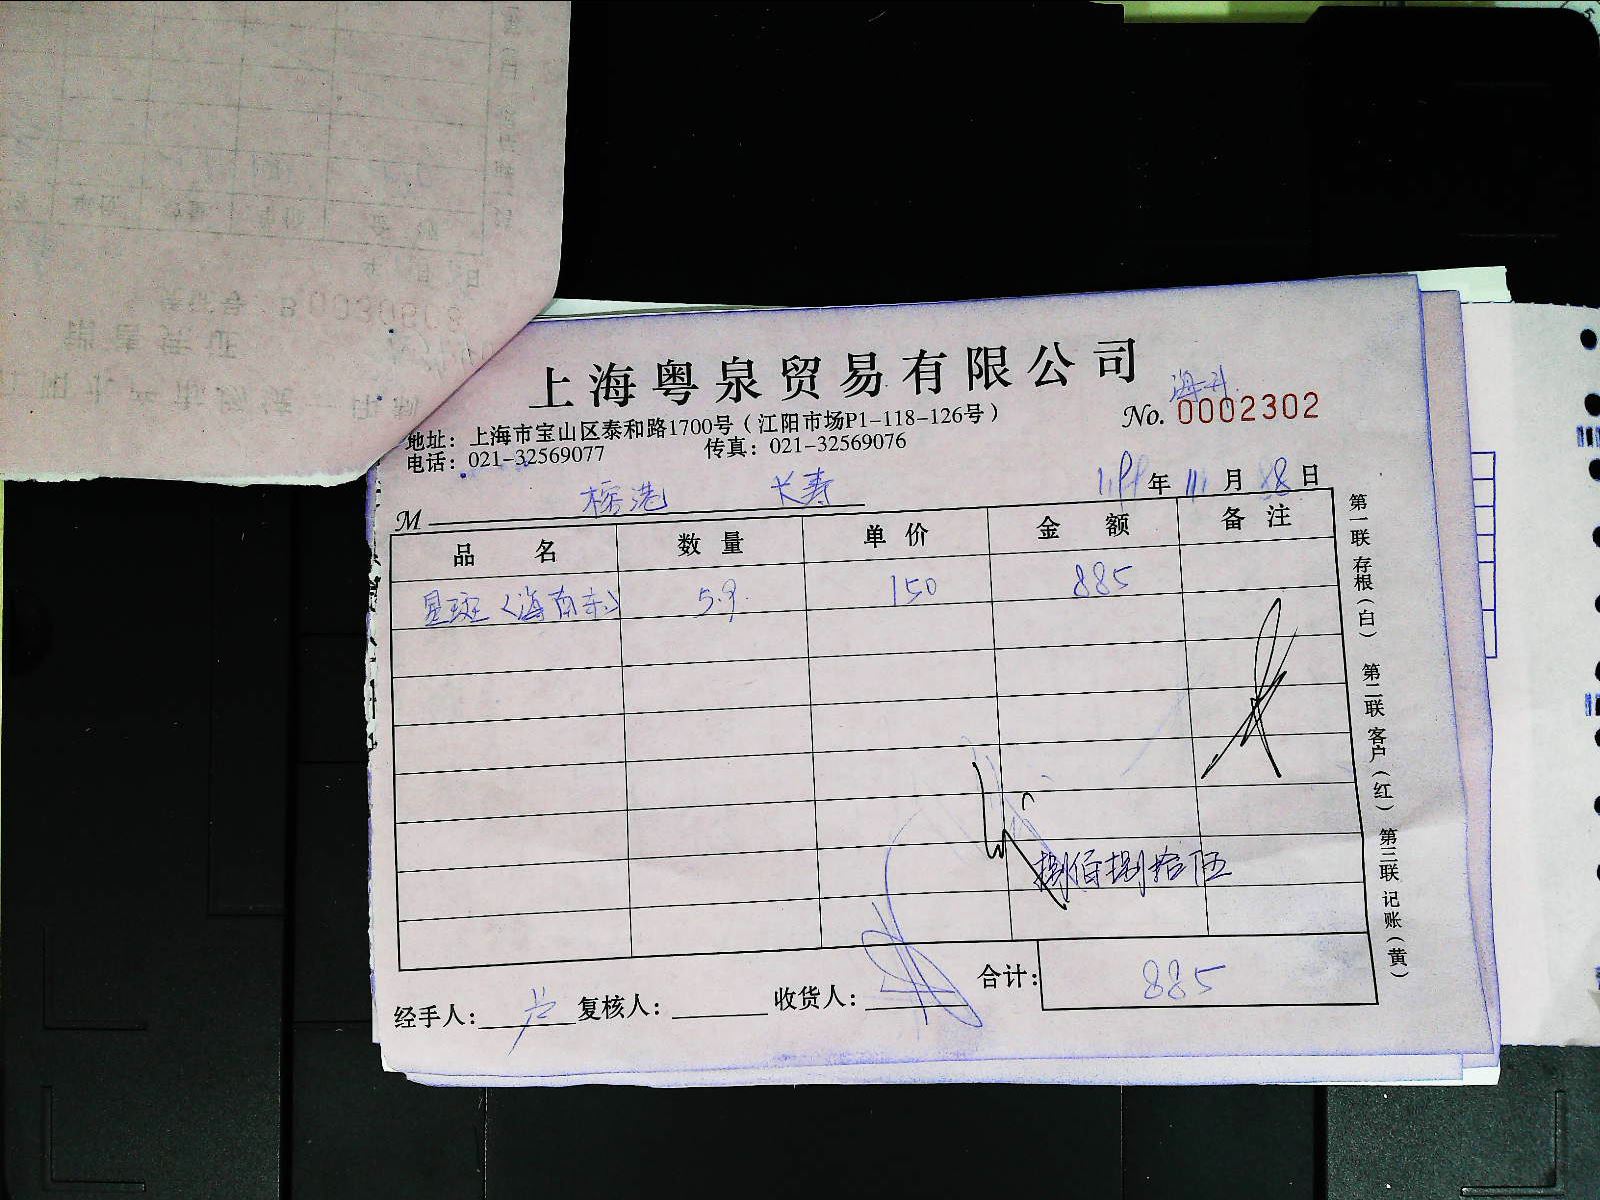 上海粤泉贸易有限公司
海升
No. 0002302
地址：上海市宝山区泰和路1700号（江阳市场P1-118-126号）
电话：021-32569077 传真：021-32569076
M 长寿 年 月 日
品名 数量 单价 金额 备注
星斑（海南东） 5.9. 150 885
捌佰捌拾伍
合计： 885
经手人： 复核人： 收货人：
第一联 存根（白） 第二联 客户（红） 第三联 记账（黄）